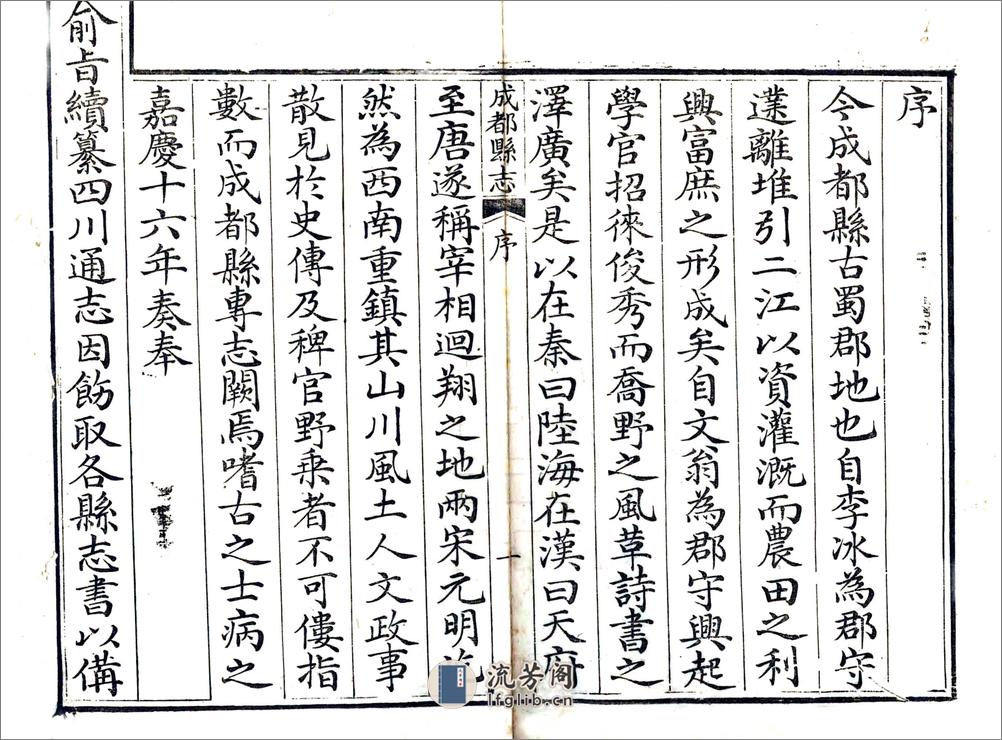 序
今成都縣古蜀郡地也自李冰為郡守
離堆引二江以資灌溉而農田之利
興富庶之形成矣自文翁為郡守興起
學官招徠俊秀而喬野之風草詩書之
澤廣矣是以在秦曰陸海在漢曰天府
成都縣志 序 一
至唐遂稱宰相迴翔之地兩宋元明
然為西南重鎮其山川風土人文政事
散見於史傳及稗官野乗者不可僂指
數而成都縣專志闕焉嗜古之士病之
嘉慶十六年奏奉
俞旨續纂四川通志因飭取各縣志書以備
流芳阁
lfglib.cn